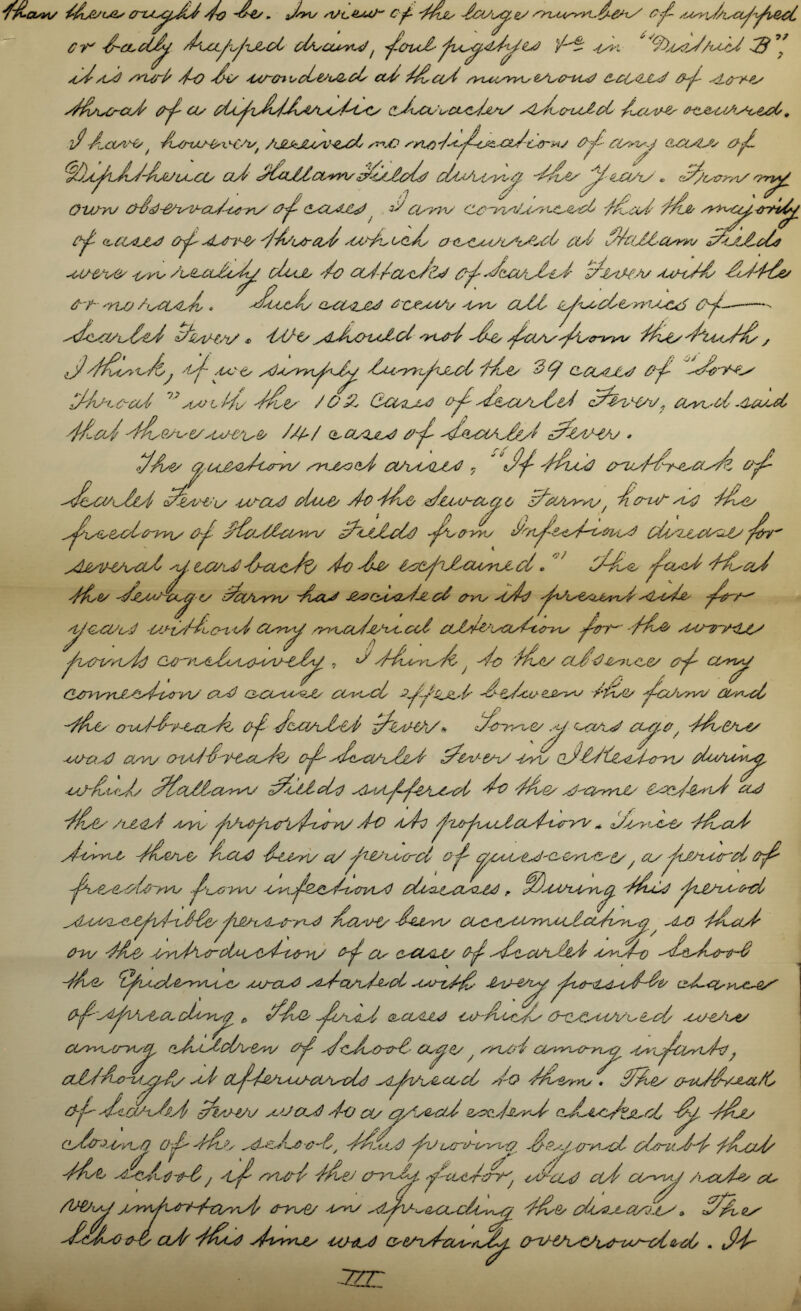 than theirs ought to be. In view of the large number of unhospifed
or badly hospifed drains, foul privies &c. in "District B",
it is not to be wondered at that numerous cases of sore
throat of a diphtheritic character should have occurred.
I have, however, received no notification of any case of
Diphtheria at Hallam Fields during the year. From my
own observation of cases, I am convinced that the majority
of cases of sore throat which occurred at Hallam Fields
were in reality due to attacks of Scarlet Fever with little
or no rash. Such cases occur in all epidemics of
Scarlet Fever. We should not be far from the truth,
I think, if we simply lumped the 39 cases of "Sore
Throat" with the 102 Cases of Scarlet Fever, and said
that there were 141 cases of Scarlet Fever.
The question must arise, "If this outbreak of
Scarlet Fever was due to the Sewage Farm, how is the
freedom of Hallam Fields from Infectious disease for
several years back to be explained." The fact that
the Sewage Farm has existed on its present site for
years without any material alteration for the worse
points conclusively, I think, to the absence of any
connection as cause and effect between the farm and
the outbreak of Scarlet Fever. Some years ago, there
was an outbreak of Scarlet Fever in Ilkeston during
which Hallam Fields suffered to the same extent as
the rest in proportion to its population. Since that
time there has been a period of quiescence, a period of
freedom from infectious diseases. During this period
susceptible persons have been accumulating, so that
on the introduction of a case of Scarlet into School
the Epidemic was started with every possible chance
of spreading. The first cases which occurred were
among children of School age, not among infants,
although it afterwards spread to them. The outbreak
of Scarlet Fever was to a great extent checked by the
closing of the school, thus proving beyond doubt that
the School, if not the only factor, was at any rate a
very important one in spreading the disease. The
School at this time was certainly overcrowded. It
III